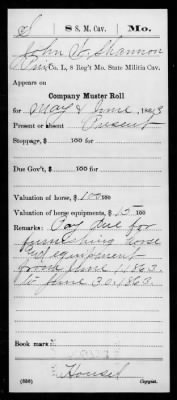 S 8 S. M. Cav. Mo.
John F. Shannon
Pvt., Co. L, 8 Reg't Mo. State Militia Cav.
Appears on
Company Muster Roll
for May & June, 1863
Present or absent Present
Stoppage, $ 100 for
Due Gov't, $ 100 for
Valuation of horse, $ 100 100
Valuation of horse equipments, $ 15 100
Remarks: Pay due for
furnishing horse
and equipment
from June 1 1863
to June 30. 1863.
Book mark:
(358) Housel Copyist.